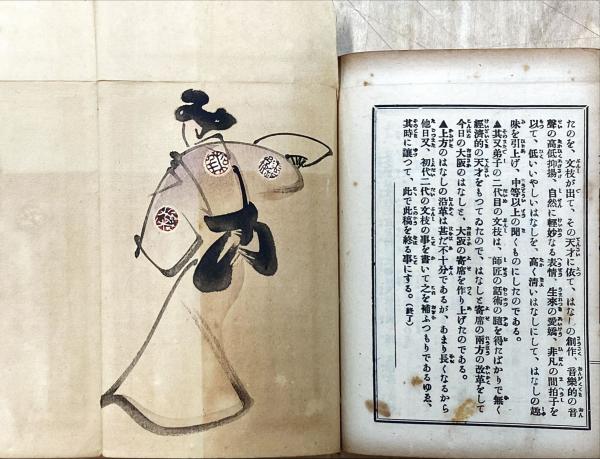 たのを、文枝が出て、その天才に依て、はなしの創作、音樂的の音
聲の高低抑揚、自然に輕妙なる表情、生來の愛嬌、非凡の間拍子を
以て、低いいやしいはなしを、高く清いはなしにして、はなしの趣
味を引上げ、中等以上の聞くものにしたのである。
▲其又弟子の二代目の文枝は、師匠の話術の髓を得たばかりで無く
經濟的の天才をもつてゐたので、はなしと寄席の兩方の改革をして
今日の大阪のはなしと、大阪の寄席を作り上げたのである。
▲上方のはなしの沿革は甚だ不十分であるが、あまり長くなるから
他日又、初代二代の文枝の事を書いて之を補ふつもりであるゆゑ、
其時に讓つて、此で此稿を終る事にする。(終了)